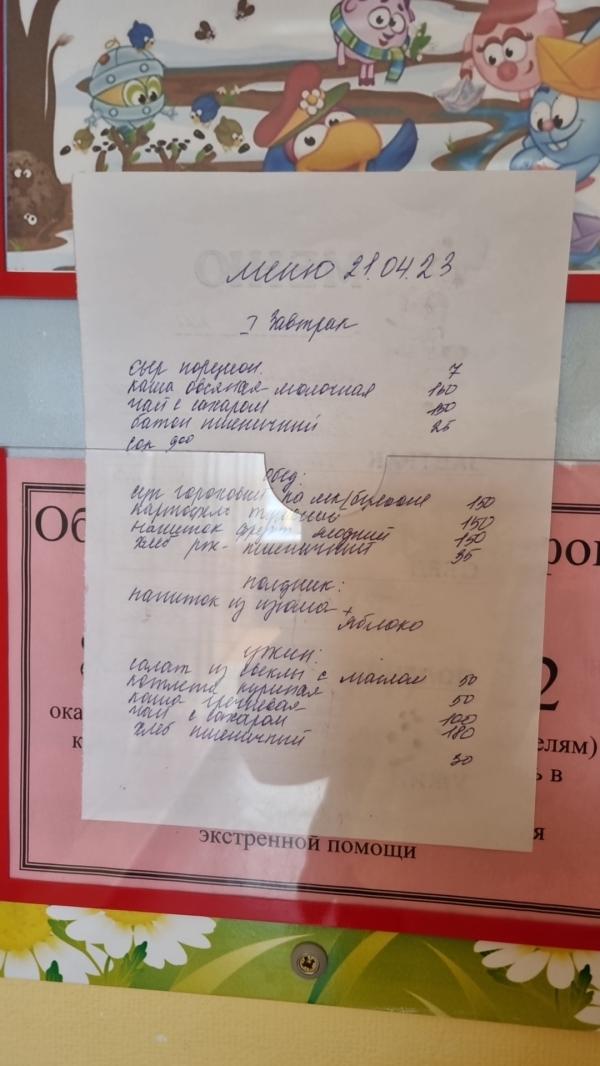 Меню 21.04.23
I Завтрак
сыр порцион. 7
каша овсяная молочная 150
чай с сахаром 150
батон пшеничний 25
сок 900
Обед:
суп гороховий на мк/бульоне 150
картофель тушений 150
напиток фрукт. ягодний 150
хлеб рж- пшеничний 35
полдник:
напиток из изюма +
яблоко
ужин:
салат из свеклы с маслом 50
котлета куриная 50
каша гречневая 100
чай с сахаром 180
хлеб пшеничний
30
Об
ока
к
2
елям)
ь в
я
экстренной помощи